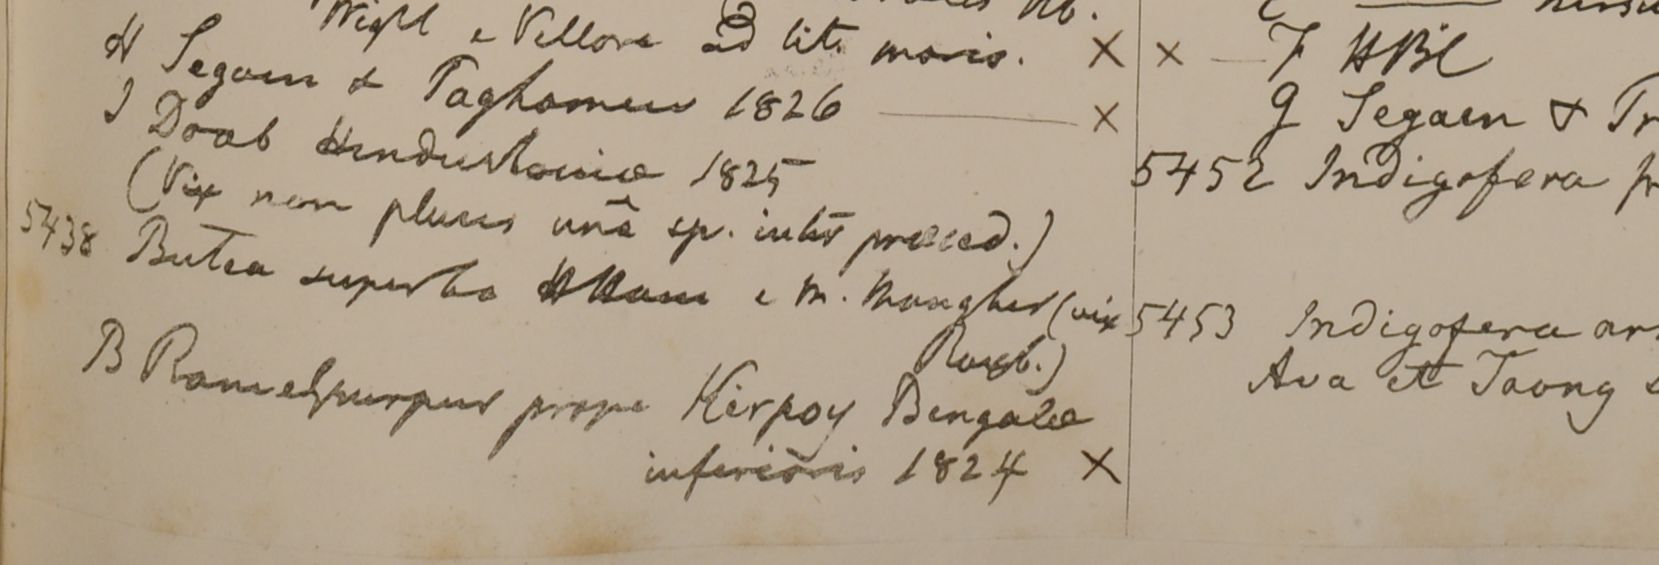 Wight e Vellore ad lit. maris. ×
H Segaen & Taghamew 1826 — ×
I Doab Hindustaniae 1825
(Vix non plures unâ sp. inter praeced.)
5438 Butea superba HHam e M. Mongher (vix
Roxb.)
B Ramelpurpur prope Kirpoy Bengalae
inferioris 1824 ×
× — F HBC
G Segaen & Tr
5452 Indigofera
5453 Indigofera
Ava et Taong